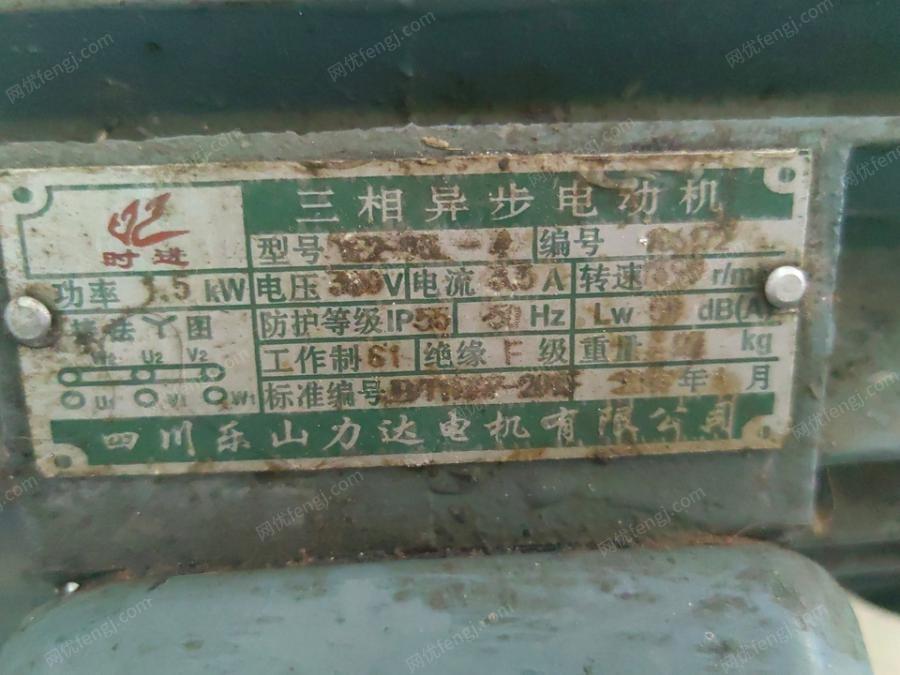 三相异步电动机
时进
型号 编号
功率 1.5 kW 电压 380V 电流 3.5 A 转速 r/min
接法丫图 防护等级IP55 50 Hz Lw dB(A)
工作制S1 绝缘 F 级 重量 kg
W2 U2 V2
U1 V1 W1
标准编号 年 月
四川乐山力达电机有限公司
网优fengj.com